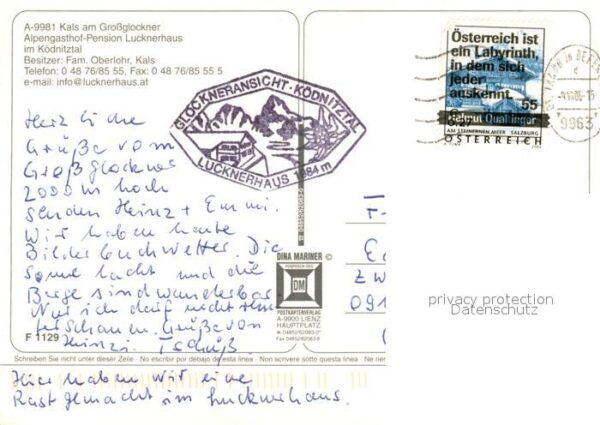 A-9981 Kals am Großglockner
Alpengasthof-Pension Lucknerhaus
im Ködnitztal
Besitzer: Fam. Oberlohr, Kals
Telefon: 0 48 76/85 55, Fax: 0 48 76/85 55 5
e-mail: info@lucknerhaus.at
GLOCKNERANSICHT · KÖDNITZTAL
LUCKNERHAUS 1984 m
Österreich ist
ein Labyrinth,
in dem sich
jeder
auskennt.
55
Helmut Qualtinger
AM STEINERNEN MEER SALZBURG
ÖSTERREICH
9963
Herzliche
Grüße vom
Großglockner
2000 m hoch
senden Heinz + Emmi.
Wir haben heute
Bilderbuchwetter. Die
Sonne lacht und die
Berge sind wunderbar
Nur ich darf nicht
schauen. Grüße von
Heinzi. Tschüß.
F 1129
DINA MARINER ©
DM
POSTKARTENVERLAG
A-9900 LIENZ
HAUPTPLATZ
☎ 04852/62083-0*
Fax 04852/62083-6
F-
E
ZW
091
privacy protection
Datenschutz
Schreiben Sie nicht unter dieser Zeile · No escribir por debajo de esta linea · Non scrivere sotto questa linea · Ne
Hier haben wir eine
Rast gemacht im Lucknerhaus.